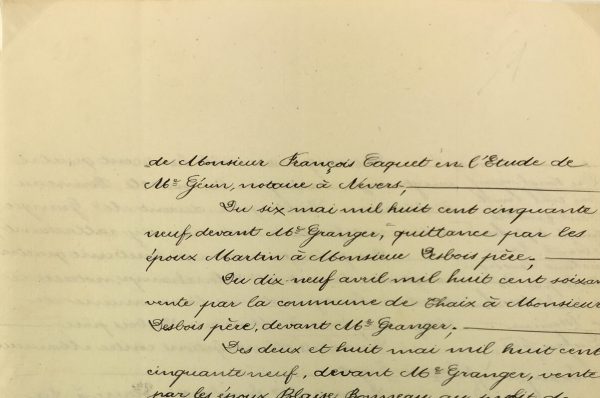 de Monsieur François Taquet en l'Etude de
Me Géin, notaire à Nevers,
Du six mai mil huit cent cinquante
neuf, devant Me Granger, quittance par les
époux Martin à Monsieur Desbois père;
Du dix neuf avril mil huit cent soixan
vente par la commune de Thaix à Monsieur
Desbois père, devant Me Granger;
Des deux et huit mai mil huit cent
cinquante neuf, devant Me Granger, vente
par les époux Blaise Bonneau au profit de